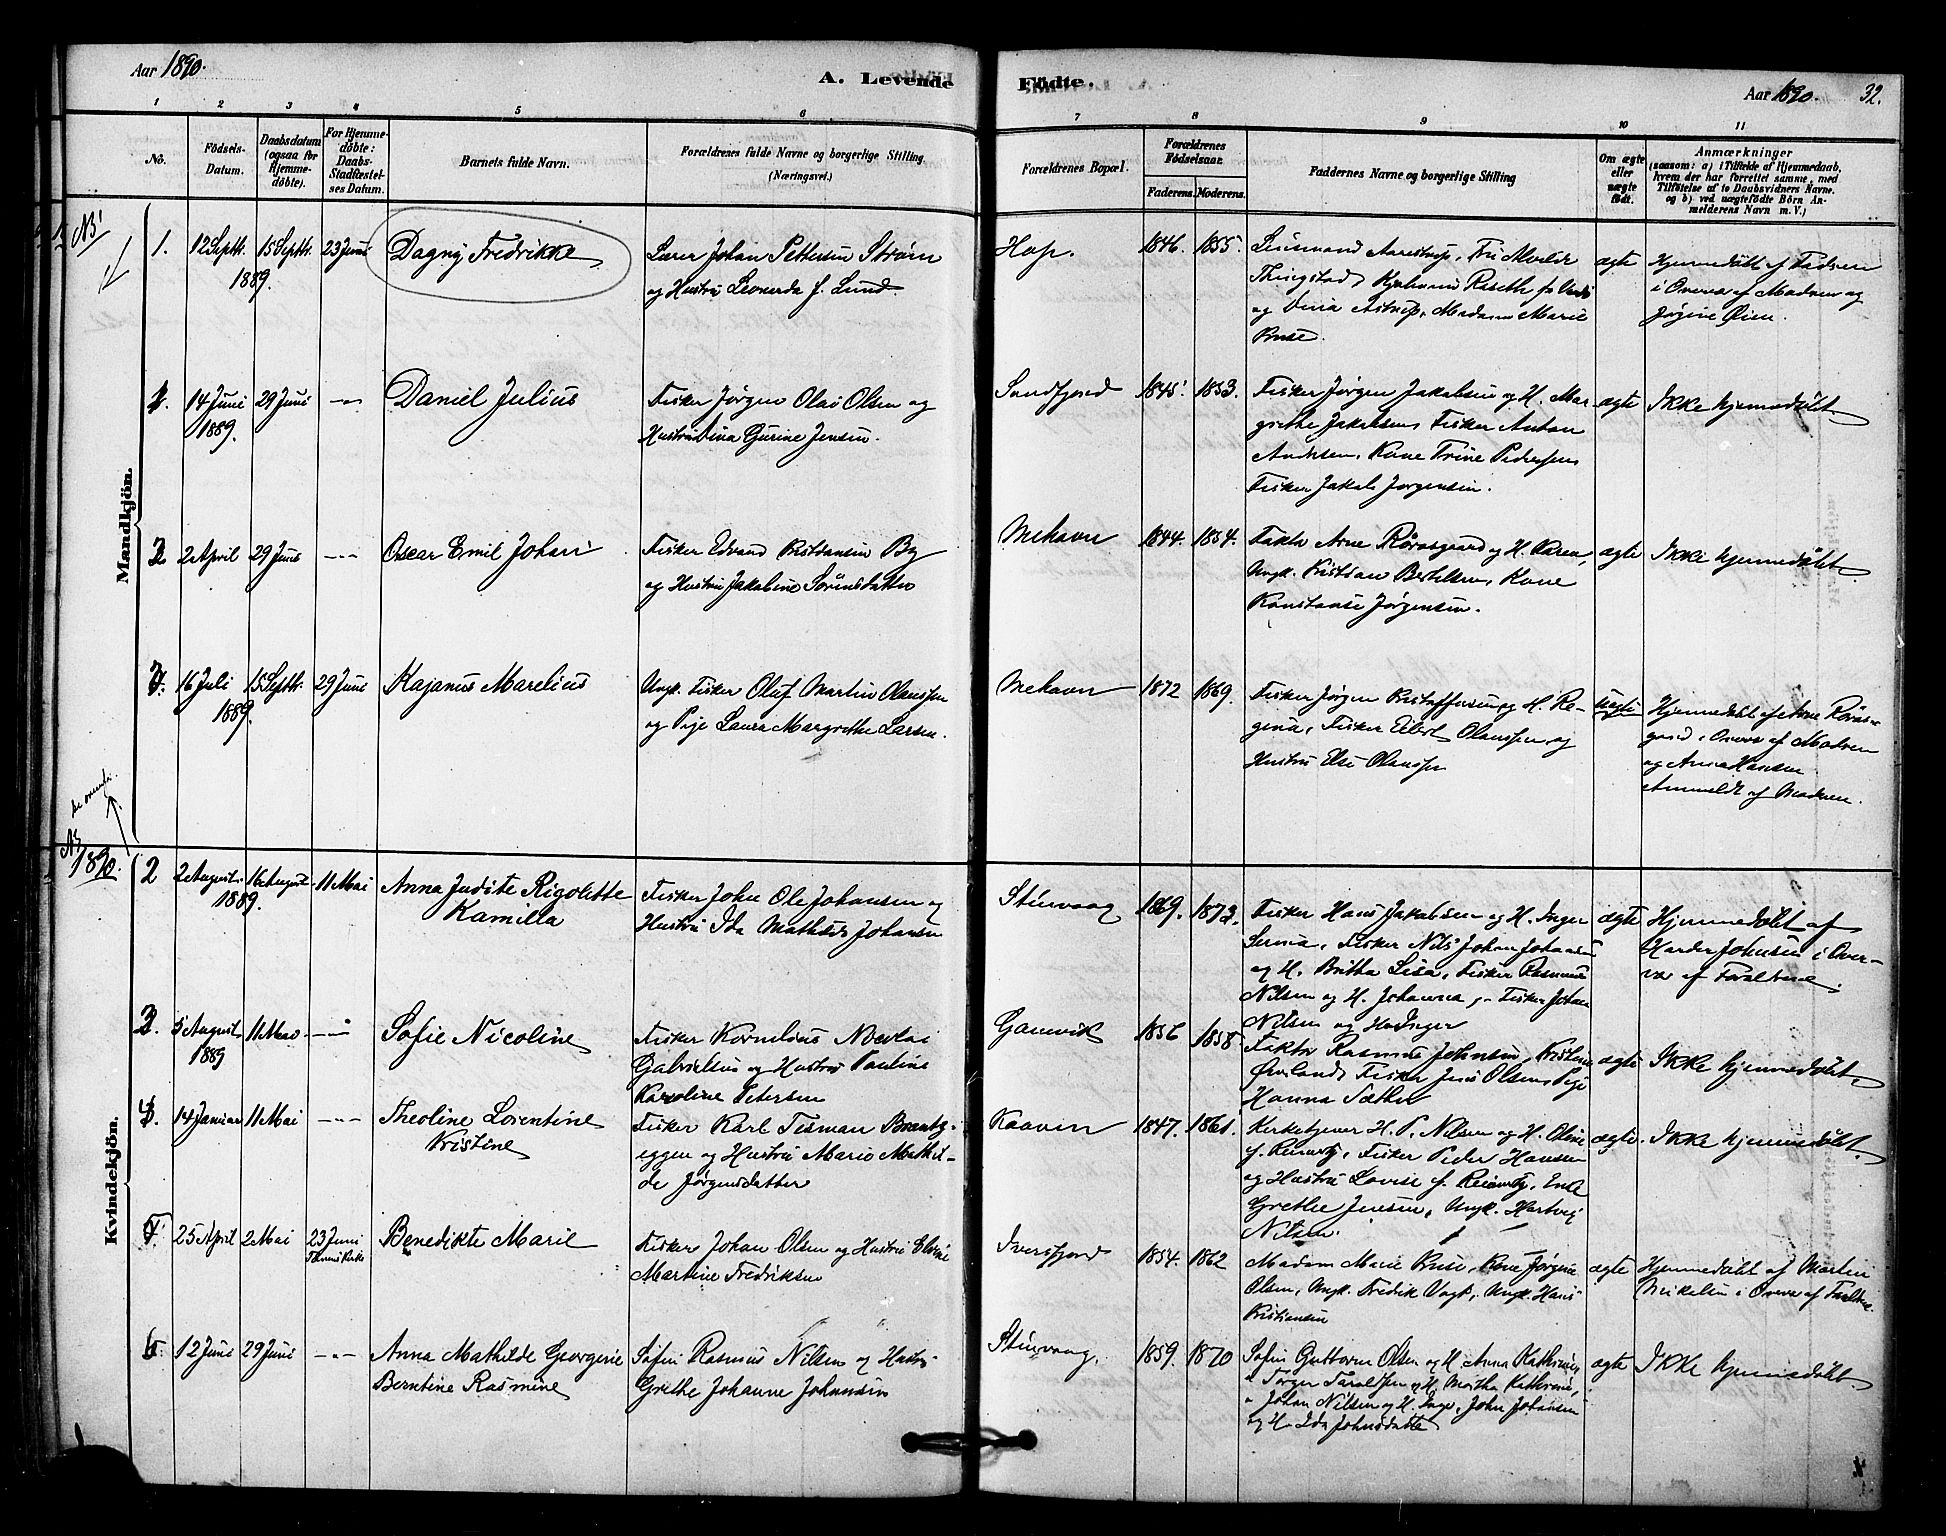 Aar 1890.
A. Levende
Födte.
Aar 1890.
32.
1 2 3 4 5 6
7 8 9 10 11
No.
Födsels-
Datum.
Daabsdatum
(ogsaa for
Hjemme-
döbte).
For Hjemme-
döbte:
Daabs-
Stadfæstel-
ses Datum.
Barnets fulde Navn.
Forældrenes fulde Navne og borgerlige Stilling.
(Næringsvei.)
Forældrenes Bopæl.
Forældrenes
Födselsaar.
Faderens.
Moderens.
Faddernes Navne og borgerlige Stilling
Om ægte
eller
uægte
födt.
Anmærkninger
(saasom: a) i Tilfælde af Hjemmedaab,
hvem der har forrettet samme, med
Tilföielse af to Daabsvidners Navne.
og b) ved uægtefödte Börn An-
melderens Navn m. V.)
Mandkjön.
1.
12 Septbr.
1889.
15 Septbr.
23 Juni
Dagny Fredrikke
Lærer Johan Pettersen Strøm
og Hustru Leonarda f. Lund.
Hop.
1846.
1855.
Thingstad
og Astrup, Madam Marie
Buse.
ægte
Hjemmedøbt af Fadren
i Overv. af Madren og
Jørgine Øien.
14 Juni
1889.
29 Juni
Daniel Julius
Fisker Jørgen Olai Olsen og
Hustru Gurine Jensen.
Sandfjord
1845.
1853.
Fisker Jørgen Jakobsen og H. Mar-
grethe Jakobsen, Fisker Anton
Andersen, Kone Trine Pedersen
Fisker Jakob Jørgensen.
ægte
Ikke hjemmedøbt
2.
2 April
29 Juni
Oscar Emil Johan
Fisker Edvard Kristiansen By
og Hustru Jakobine Sørensdatter
Mehavn
1844.
1854.
Faktor Arne Rørasgaard og H. Karen,
Ungk. Kristian Bertelsen, Kone
Konstanse Jørgensen.
ægte
Ikke hjemmedøbt
3.
16 Juli
1889.
15 Septbr.
29 Juni
Kajanus Marelius
Ungk. Fisker Oluf Martin Olaussen
og Pige Laura Margrethe Larsen.
Mehavn
1872
1869.
Fisker Jørgen Kristoffersen og H. Ra-
gina, Fisker Eibert Olaussen og
Hustru Else Olaussen
uægte
Hjemmedøbt af Arne Røras-
gaard i Overv. af Madren
og Anna Hansen
Anmeldt af Madren.
1890.
Kvindekjön.
2
2 August.
1889.
16 August
11 Mai
Anna Judite Rigolette
Kamilla
Fisker John Ole Johansen og
Hustru Ida Mathilde Johansen
Sturvaag
1869.
1873.
Fisker Hans Jakobsen og H. Inger
Serina, Fisker Nils Johan Johansen
og H. Britha Lisa, Fisker Rasmus
Nilsen og H. Johanna, Fisker Johan
Nilsen og H. Inger
ægte
Hjemmedøbt af
Harder Johnsen i Over-
vær af Forældrene.
3.
5 August
1889
11 Mai
Sofie Nicoline
Fisker Kornelius Nicolai
Gabrielsen og Hustru Pauline
Karoline Petersen
Gamvik
1856
1858.
Faktor Rasmus Johnsen, Kristine
Øverland, Fisker Jens Olsen, Pige
Hanna Sæther
ægte
Ikke hjemmedøbt.
14 Januar
11 Mai
Theoline Lorentine
Kristine
Fisker Karl Tisman Brantz-
eggen og Hustru Marie Mathil-
de Jørgensdatter
Kaaven
1847.
1861.
Kirketjener H. P. Nilsen og H. Oline
Fisker Peder Hansen
og Hustru Lovise Enke
Grethe Jensen, Ungk. Hartvig
Nilsen.
ægte
Ikke hjemmedøbt.
25 April
2 Mai
23 Juni
Benedikte Marie
Fisker Johan Olsen og Hustru
Martine Fredriksen
Iversfjord
1854.
1862
Madam Marie Buse, Kone Jørgine
Olsen, Ungk. Fredrik Vogt, Ungk. Hans
Kristiansen
ægte
Hjemmedøbt af Martin
Mikelsen i Overv. af Forældre.
12 Juni
29 Juni
Anna Mathilde Georgine
Berntine Rasmine
Søfin Rasmus Nilsen og Hustru
Grethe Johanne Johansen
Sturvaag.
1859.
1870
Søfin Guttorm Olsen og H. Anna Kathrine,
" Torger Taraldsen og H. Martha Kathrine,
" Johan Nilsen og H. Inger, John Johansen
og H. Ida Johnsdatter
ægte
Ikke hjemmedøbt.